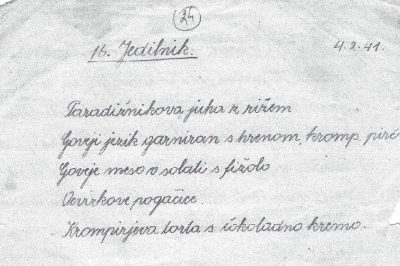 24
16. Jedilnik. 4.2.41.
Paradižnikova juha z rižem
Goveji jezik garniran s hrenom, kromp. pire
Goveje meso v solati s fižolo
Ocvirkove pogačice.
Krompirjeva torta s čokoladno kremo.